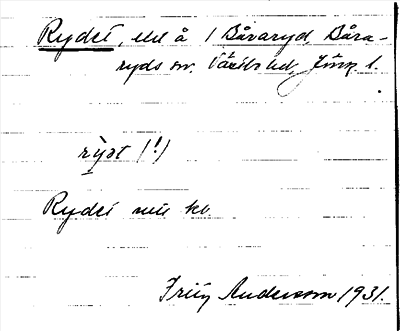 Rydet, del å 1 Båvaryd, Båra-
ryds sn. Västbo hd, Jönk. l.
rỳət (!)
Rydet kb.
Fritz Andersson 1931.